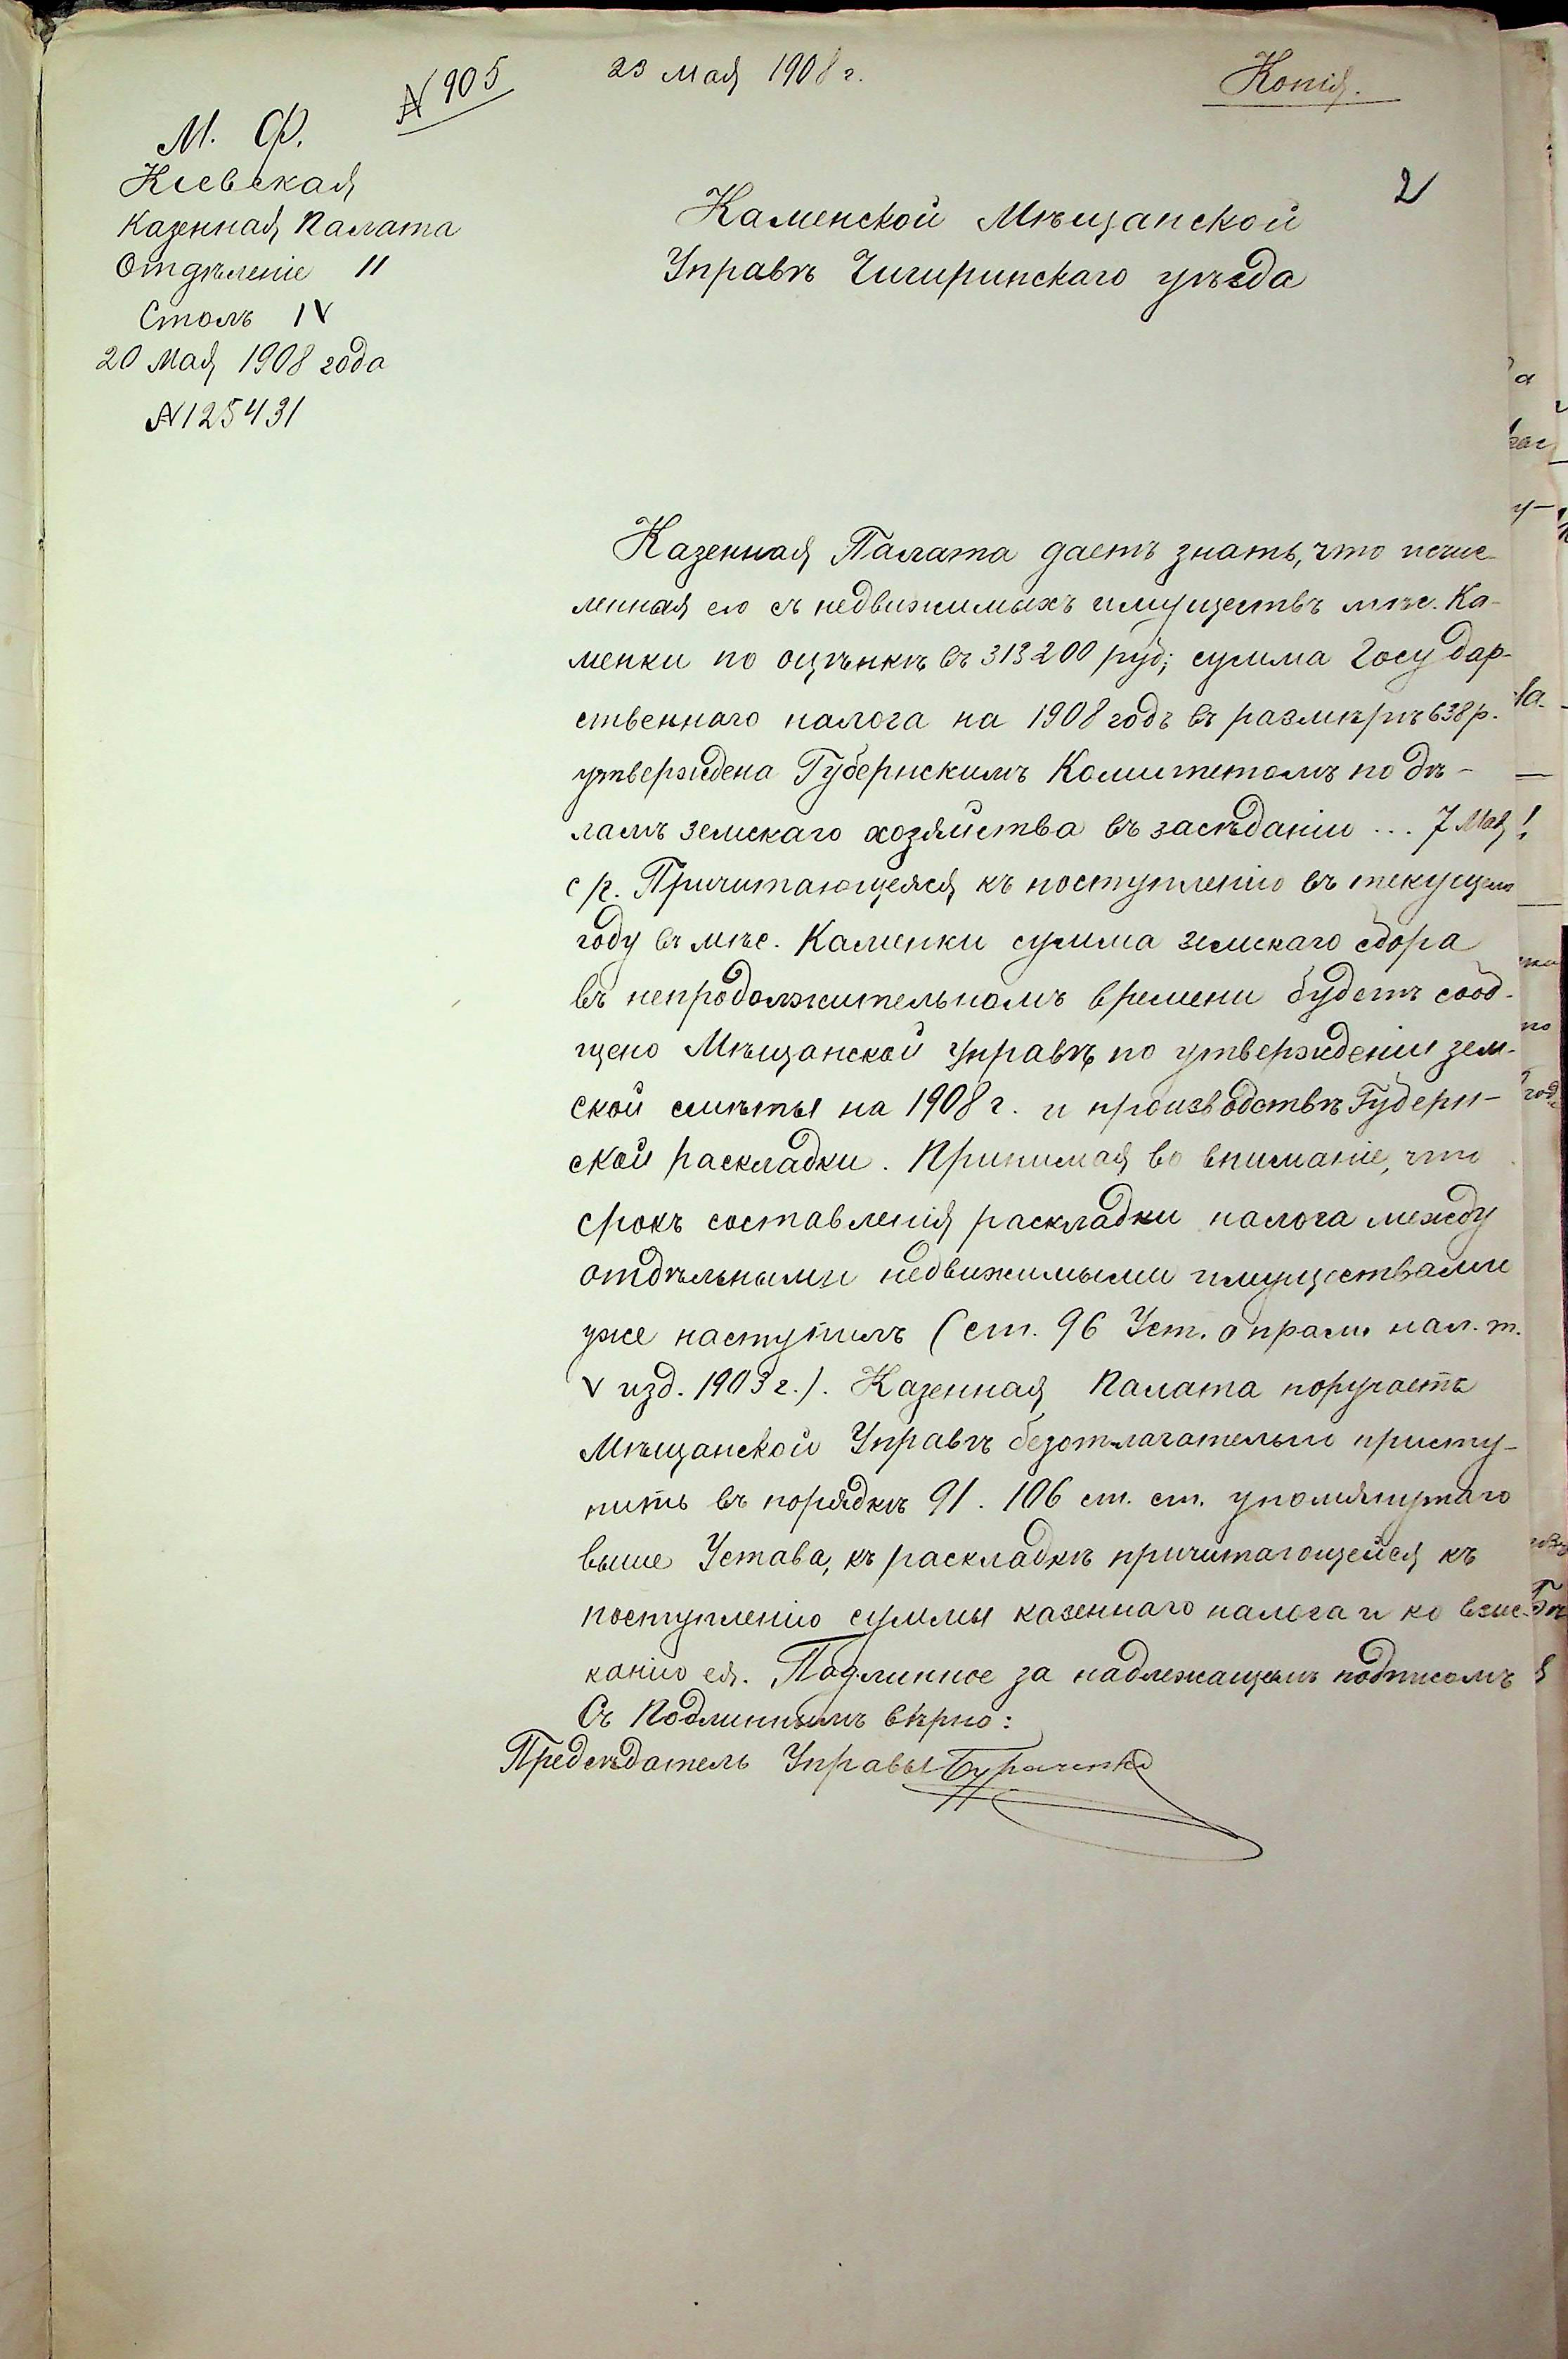 № 905
23 Мая 1908 г.
Копія.
2
М. Ф.
Кіевская
Казенная Палата
Отдѣленіе II
Столъ IV
20 Мая 1908 года
№125431
Каменской Мѣщанской
Управѣ Чигиринскаго уѣзда
Казенная Палата даетъ знать, что исчис-
ленная ею съ недвижимыхъ имуществъ мѣс. Ка-
менки по оцѣнкѣ въ 313200 руб; сумма Государ-
ственнаго налога на 1908 годъ въ размѣрѣ 638 р.
утверждена Губернскимъ Комитетомъ по дѣ-
ламъ земскаго хозяйства въ засѣданіи ... 7 Мая
с г. Причитающеяся къ поступленію въ текущемъ
году въ мѣс. Каменки сумма земскаго сбора
въ непродолжительномъ времени будетъ сооб-
щено Мѣщанской Управѣ по утвержденіи зем-
ской смѣты на 1908 г. и производствѣ Губерн-
ской раскладки. Принимая во вниманіе, что
срокъ составленія раскладки налога между
отдѣльными недвижимыми имуществами
уже наступилъ (ст. 96 Уст. о прям. нал. т.
V изд. 1903 г.). Казенная Палата поручаетъ
Мѣщанской Управѣ безотлагательно присту-
пить въ порядкѣ 91. 106 ст. ст. упомянутаго
выше Устава, къ раскладкѣ причитающейся къ
поступленію суммы казеннаго налога и ко взис-
канію ея. Подлинное за надлежащемъ подписомъ
Съ Подлиннымъ вѣрно:
Предсѣдатель Управы